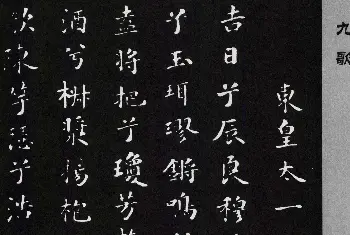 九歌
東皇太一
吉日兮辰良穆
兮玉珥璆鏘鳴
盍將把兮瓊芳
酒兮椒漿揚枹
陳竽瑟兮浩